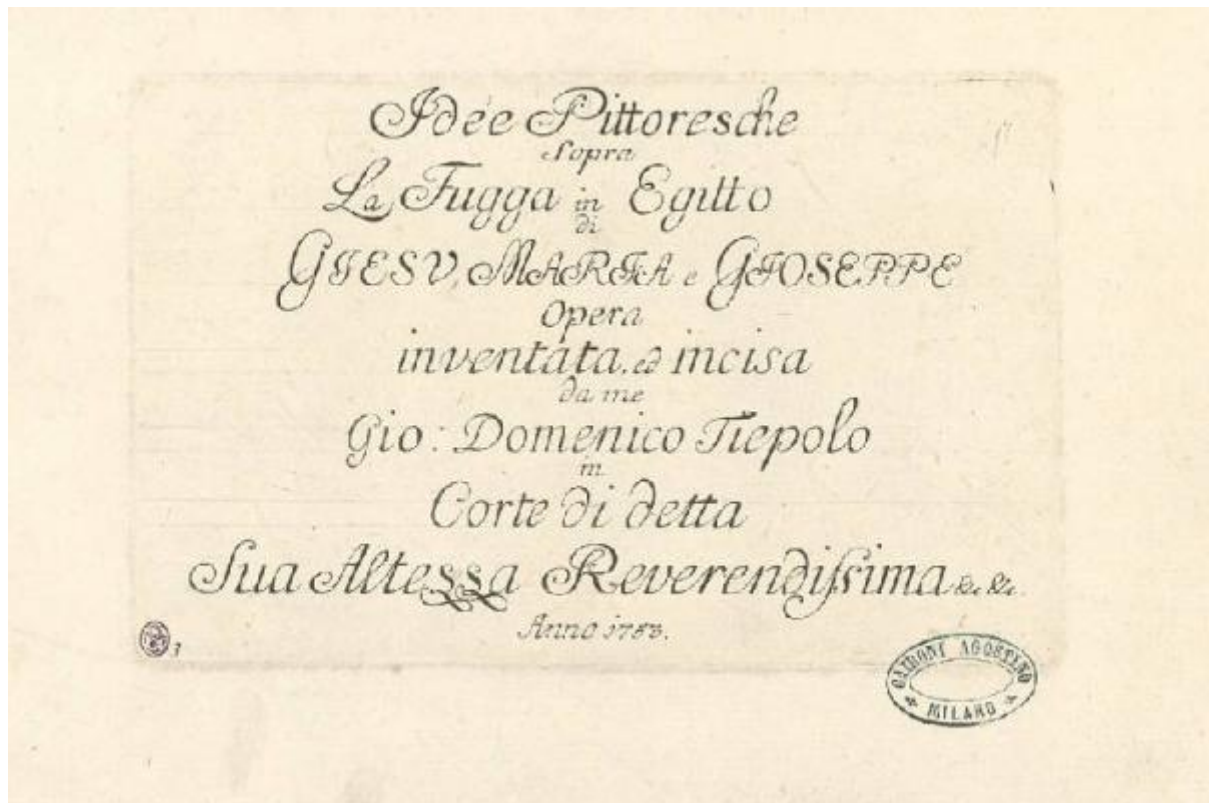 Idée Pittoresche
Sopra
La Fugga in Egitto
di
GIESV, MARIA e GIOSEPPE
Opera
inventata, ed incisa
da me
Gio: Domenico Tiepolo
in
Corte di detta
Sua Altezza Reverendissima &c. &c.
Anno 1753.
3
CAIRONI AGOSTINO
MILANO